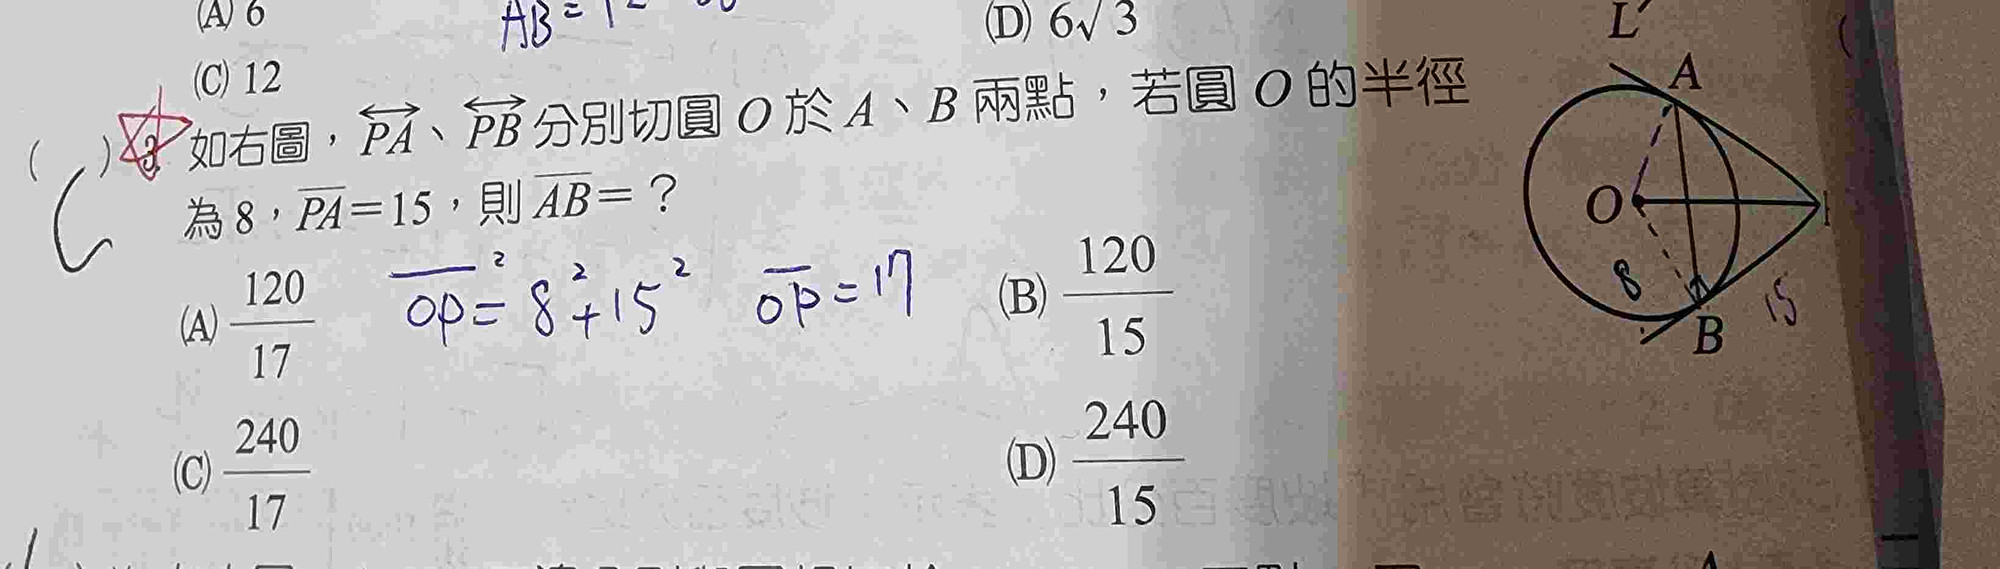 (A) 6
AB = 12
(D) 6√3
(C) 12
L
( ) 3. 如右圖，PA、PB 分別切圓 O 於 A、B 兩點，若圓 O 的半徑
為 8，PA=15，則 AB=？
A
O
B
8
15
(A) 120/17
OP² = 8² + 15² OP = 17
(B) 120/15
(C) 240/17
(D) 240/15